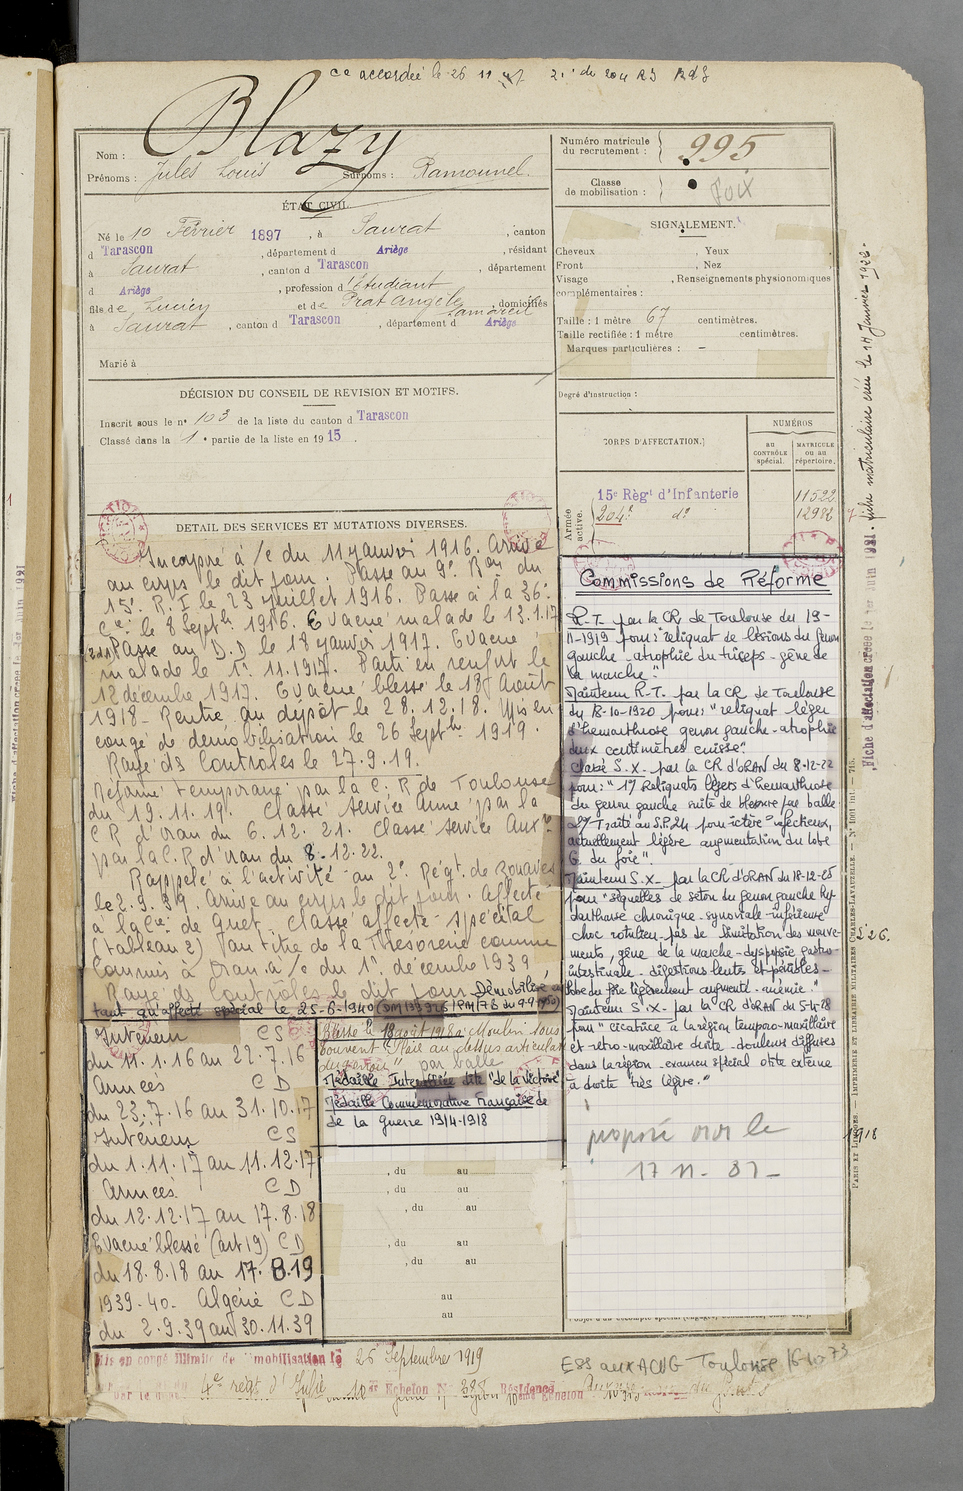 ce accordée le 26 11
Blazy
Nom :
Prénoms : Jules Louis Surnoms : Ramounel.
ÉTAT CIVIL.
Né le 10 Février 1897, à Saurat, canton
d Tarascon, département d Ariège, résidant
à Saurat, canton d Tarascon, département
d Ariège, profession d'Etudiant
fils de Lucien et de Prat Angèle, domiciliés
à Saurat, canton d Tarascon, département d Ariège
Marié à
DÉCISION DU CONSEIL DE REVISION ET MOTIFS.
Inscrit sous le n° 103 de la liste du canton d Tarascon
Classé dans la 1e partie de la liste en 1915.
Numéro matricule du recrutement : 995
Classe de mobilisation : Foix
SIGNALEMENT.
Cheveux , Yeux
Front , Nez
Visage , Renseignements physionomiques
complémentaires :
Taille : 1 mètre 67 centimètres.
Taille rectifiée : 1 mètre centimètres.
Marques particulières : –
Degré d'instruction :
CORPS D'AFFECTATION.
NUMÉROS
AU CONTRÔLE spécial.
MATRICULE ou au répertoire.
Armée active.
15e Règt d'Infanterie 11522
204e do 12982
DETAIL DES SERVICES ET MUTATIONS DIVERSES.
Incorporé à /c du 11 janvier 1916. Arrivé
au corps le dit jour. Passé au 9e Bon du
15e R.I le 23 juillet 1916. Passé à la 36e
Cie le 8 Septbre 1916. Evacué malade le 13.1.17
Passé au D.D le 18 janvier 1917. Evacué
malade le 1er 11.1917. Parti en renfort le
12 décembre 1917. Evacué blessé le 18 Août
1918 - Rentré au dépôt le 28.12.18. Mis en
congé de démobilisation le 26 Septbre 1919.
Rayé ds Contrôles le 27.9.19.
Réformé temporaire par la C.R de Toulouse
du 19.11.19. Classé Service Armé par la
C R d'Oran du 6.12.21. Classé Service Auxre
par la C.R d'Oran du 8.12.22.
Rappelé à l'activité au 2e Régt de Zouaves
le 2.9.39. Arrivé au corps le dit jour. Affecté
à la Cie de Guet. Classé affecté spécial
(tableau 2) au titre de la Trésorerie comme
Commis à Oran à /c du 1er décembre 1939
Rayé ds Contrôles le dit jour. Démobilisé en
tant qu'affecté spécial le 25-6-1940
Intérieur C S
du 11.1.16 au 22.7.16
Armées C D
du 23.7.16 au 31.10.17
Intérieur C S
du 1.11.17 au 11.12.17
Armées C D
du 12.12.17 au 17.8.18
Evacué blessé (art 19) C D
du 18.8.18 au 17.8.19
1939-40- Algérie C D
du 2.9.39 au 30.11.39
Blessé le 18 août 1918 à Moulin sous
Touvent Plaie au dessus articulat
du genou par balle
Médaille Interalliée dite "de la Victoire"
Médaille Commémorative Française de
de la Guerre 1914-1918
, du au
, du au
, du au
, du au
, du au
au
au
Commissions de Réforme
R.T. par la CR de Toulouse du 19-
11-1919 pour: "reliquat de lésions du genou
gauche - atrophie du triceps - gêne de
la marche."
Maintenu R.T. par la CR de Toulouse
du 18-10-1920 pour: "reliquat léger
d'hémarthrose genou gauche - atrophie
deux centimètres cuisse."
Classé S.X. par la CR d'ORAN du 8-12-22
pour: "1°/ Reliquats légers d'hémarthrose
du genou gauche suite de blessure par balle
2°/ Traité au S.P. 24 pour ictère infectieux,
actuellement légère augmentation du lobe
G. du foie".
Maintenu S.X. par la CR d'ORAN du 18-12-25
pour "séquelles de séton du genou gauche hy-
darthrose chronique - synoviale inférieure
choc rotulien - pas de limitation des mouve-
ments, gêne de la marche - dyspepsie gastro-
intestinale - digestions lentes et pénibles -
lobe du foie légèrement augmenté - anémie."
Maintenu S.X. par la CR d'ORAN du 5-4-28
pour "cicatrice à la région temporo-maxillaire
et rétro-maxillaire droite - douleurs diffuses
dans la région - examen spécial otite externe
à droite très légère."
proposé
17 11-
Mis en congé illimité de démobilisation le 26 Septembre 1919
10e Echelon
Toulouse
Fiche matriculaire créée le 14 Janvier 1922
Fiche d'affectation créée le 1er Juin 1921
PARIS ET LIMOGES. — IMPRIMERIE ET LIBRAIRIE MILITAIRES CHARLES-LAVAUZELLE.
1918